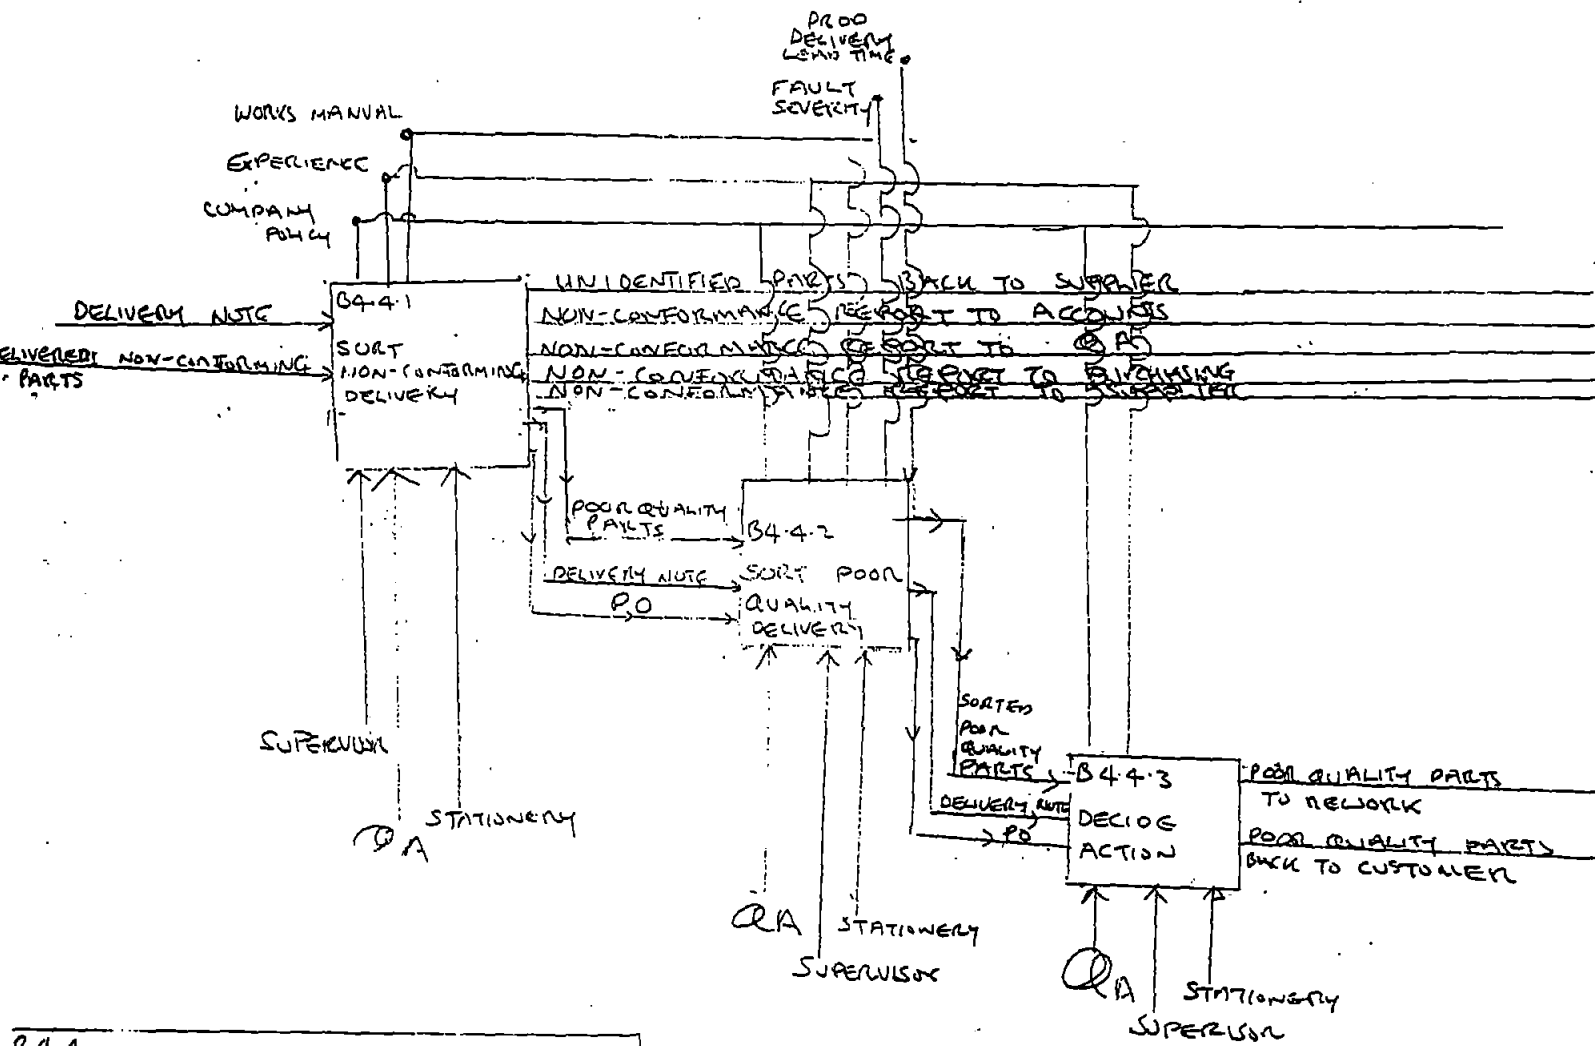 PROD
DELIVERY
LEAD TIME
FAULT
SEVERITY
WORKS MANUAL
EXPERIENCE
COMPANY
POLICY
B4.4.1
SORT
NON-CONFORMING
DELIVERY
DELIVERY NOTE
DELIVERED NON-CONFORMING
PARTS
UNIDENTIFIED PARTS BACK TO SUPPLIER
NON-CONFORMANCE REPORT TO ACCOUNTS
NON-CONFORMANCE REPORT TO QA
NON-CONFORMANCE REPORT TO PURCHASING
NON-CONFORMANCE REPORT TO SUPPLIER
POOR QUALITY
PARTS
DELIVERY NOTE
P.O
B4.4.2
SORT POOR
QUALITY
DELIVERY
SUPERVISOR
QA
STATIONERY
SORTED
POOR
QUALITY
PARTS
DELIVERY NOTE
PO
B4.4.3
DECIDE
ACTION
POOR QUALITY PARTS
TO REWORK
POOR QUALITY PARTS
BACK TO CUSTOMER
QA
STATIONERY
SUPERVISOR
QA
STATIONERY
SUPERVISOR